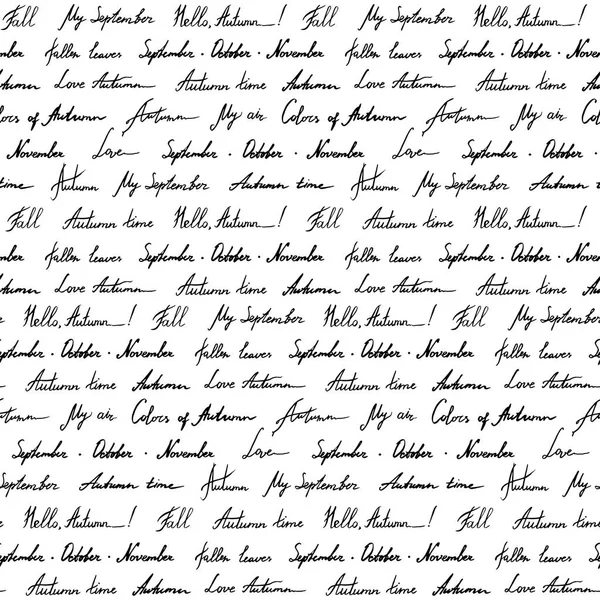 Fall My September Hello, Autumn! Fall My September Hello, Autumn!
mber Fallen leaves September · October · November Fallen leaves September · October · Novem
utumn Love Autumn Autumn time Autumn Love Autumn Autumn time Autumn
lors of Autumn Autumn My air Colors of Autumn Autumn My air Co
November Love September · October · November Love September · October ·
time Autumn My September Autumn time Autumn My September Autumn t
Fall Autumn time Hello, Autumn! Fall Autumn time Hello, Autumn!
mber Fallen leaves September · October · November Fallen leaves September · October · Novem
utumn Love Autumn Autumn time Autumn Love Autumn Autumn time Autumn
Hello, Autumn! Fall My September Hello, Autumn! Fall My September
eptember · October · November Fallen leaves September · October · November Fallen leaves Se
Autumn time Autumn Love Autumn Autumn time Autumn Love Autumn
utumn My air Colors of Autumn Autumn My air Colors of Autumn Au
September · October · November Love September · October · November Love
September Autumn time Autumn My September Autumn time Autumn My S
Hello, Autumn! Fall Autumn time Hello, Autumn! Fall Autumn time
eptember · October · November Fallen leaves September · October · November Fallen leaves Se
Autumn time Autumn Love Autumn Autumn time Autumn Love Autumn